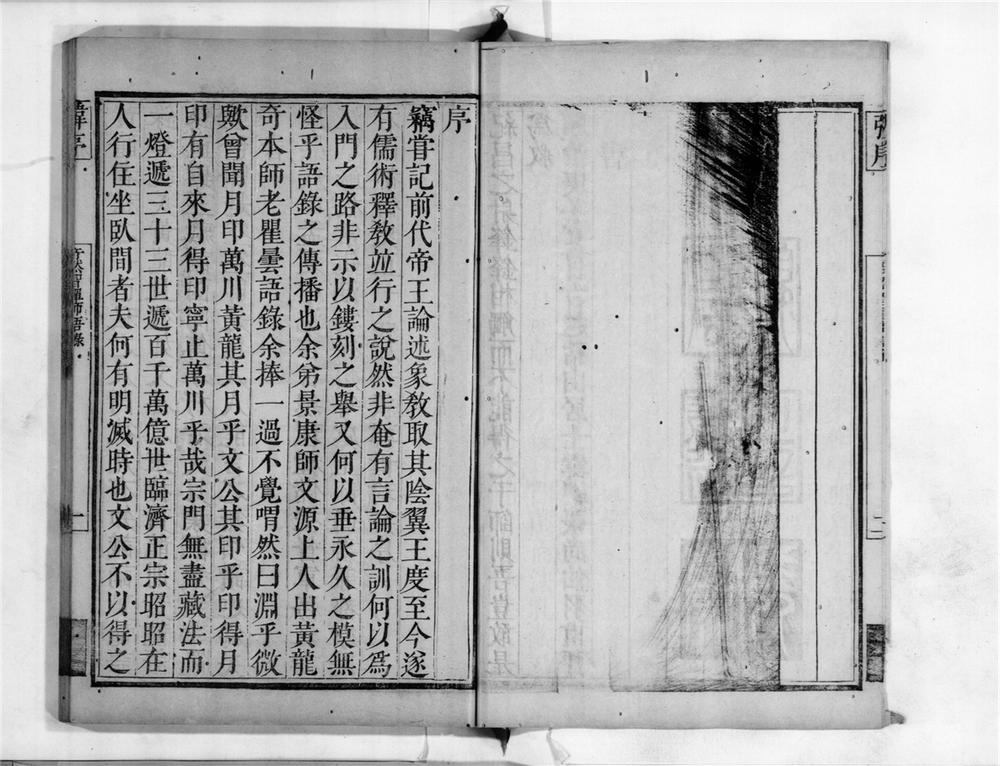 張序
序
竊甞記前代帝王論述象敎取其陰翼王度至今遂
有儒術釋敎並行之說然非奄有言論之訓何以爲
入門之路非示以鏤刻之舉又何以垂永久之模無
怪乎語錄之傳播也余弟景康師文源上人出黃龍
奇本師老瞿曇語錄余捧一過不覺喟然曰淵乎微
歟曾聞月印萬川黃龍其月乎文公其印乎印得月
印有自來月得印寧止萬川乎哉宗門無盡藏法而
一燈遞三十三世遞百千萬億世臨濟正宗昭昭在
人行住坐臥間者夫何有明滅時也文公不以得之